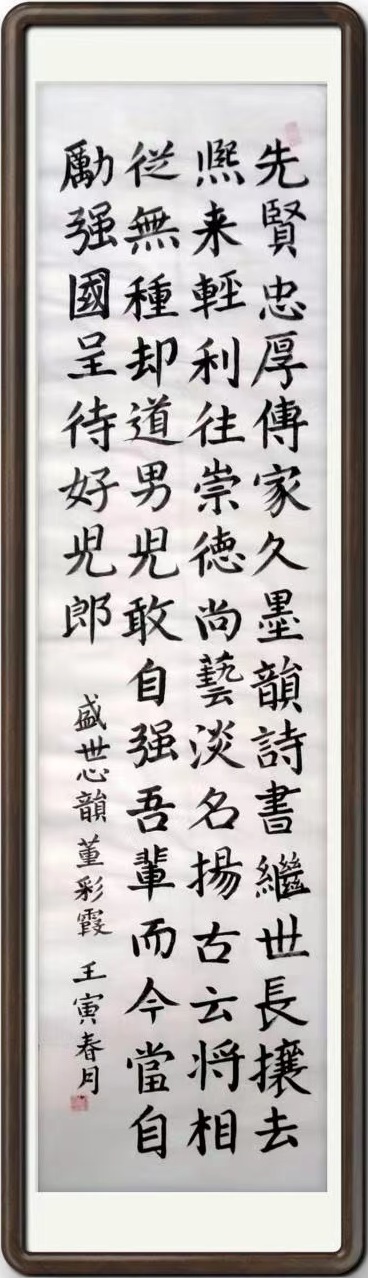 先賢忠厚傳家久墨韻詩書繼世長攘去
熙来輕利往崇德尚藝淡名揚古云将相
從無種却道男児敢自强吾輩而今當自
勵强國呈待好児郎
盛世心韻董彩霞王寅春月